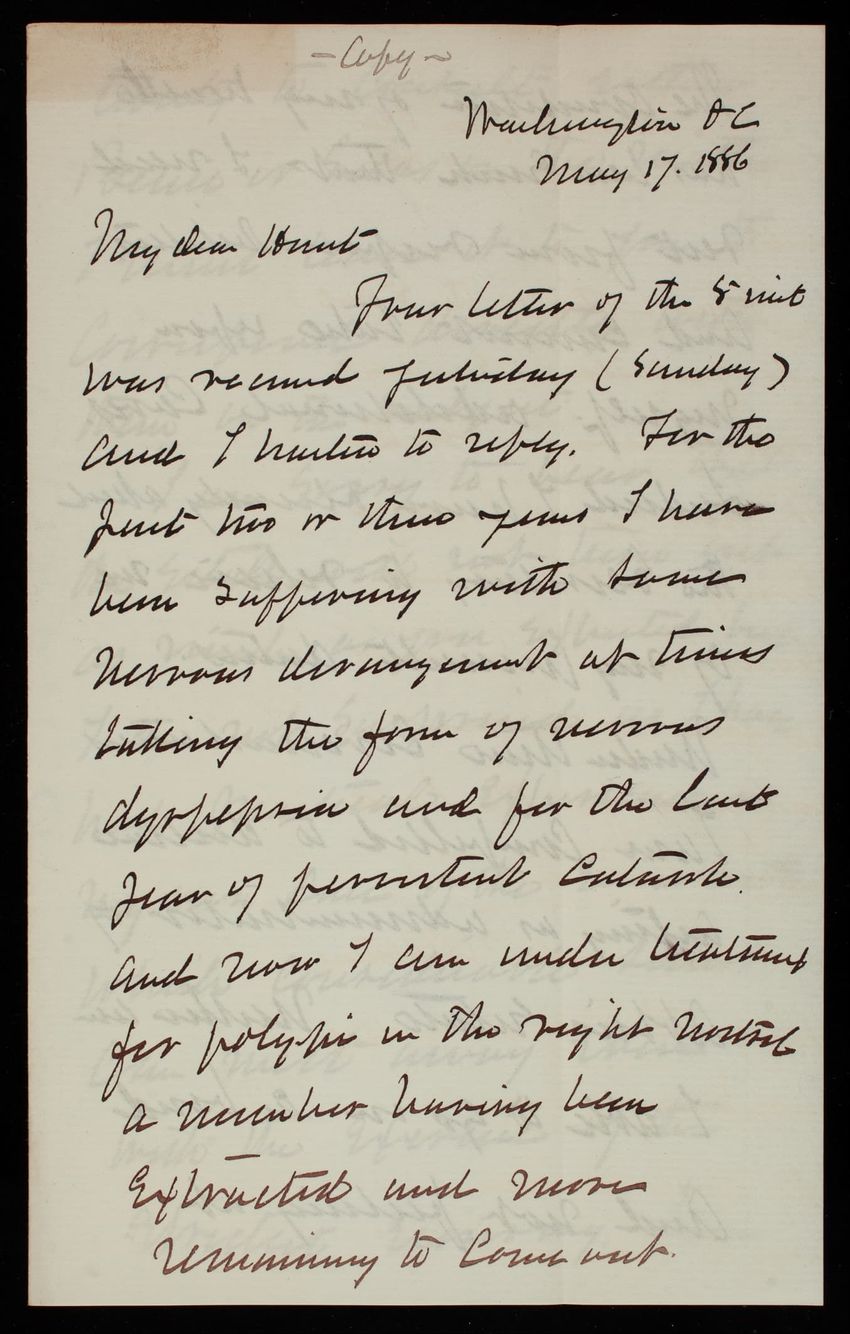 - Copy -
Washington D C
May 17. 1886
My dear Hunt
Your letter of the 8 inst
was received yesterday (Sunday)
and I hasten to reply. For the
past two or three years I have
been suffering with some
nervous derangement at times
taking the form of nervous
dyspepsia and for the last
year of persistent Catarrh.
and now I am under treatment
for polypi in the right nostril
a number having been
Extracted and more
remaining to come out.